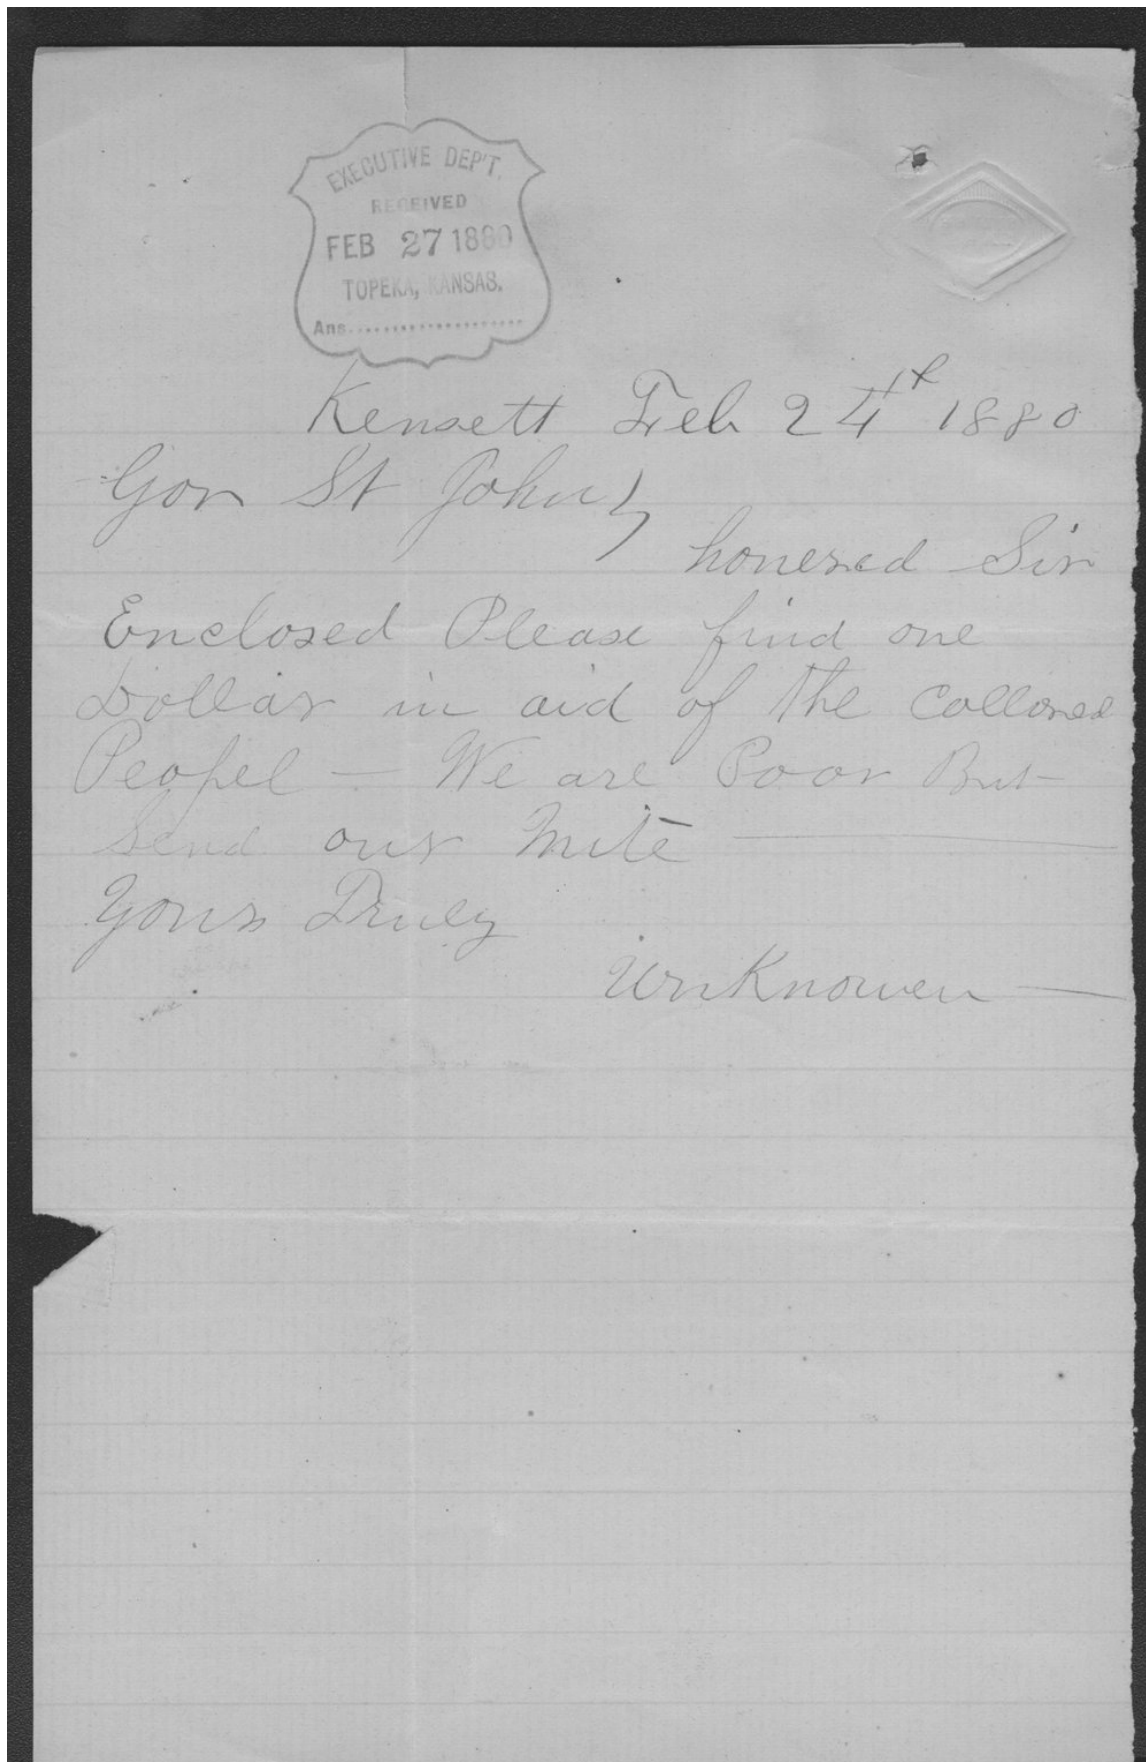 EXECUTIVE DEP'T.
RECEIVED
FEB 27 1880
TOPEKA, KANSAS.
Ans....................
Kensett Feb 24th 1880
Gov St John
honered Sir
Enclosed Please find one
Dollar in aid of the Collored
Peopel — We are Poor But
send our mite —
Yours Truly
UnKnowen —